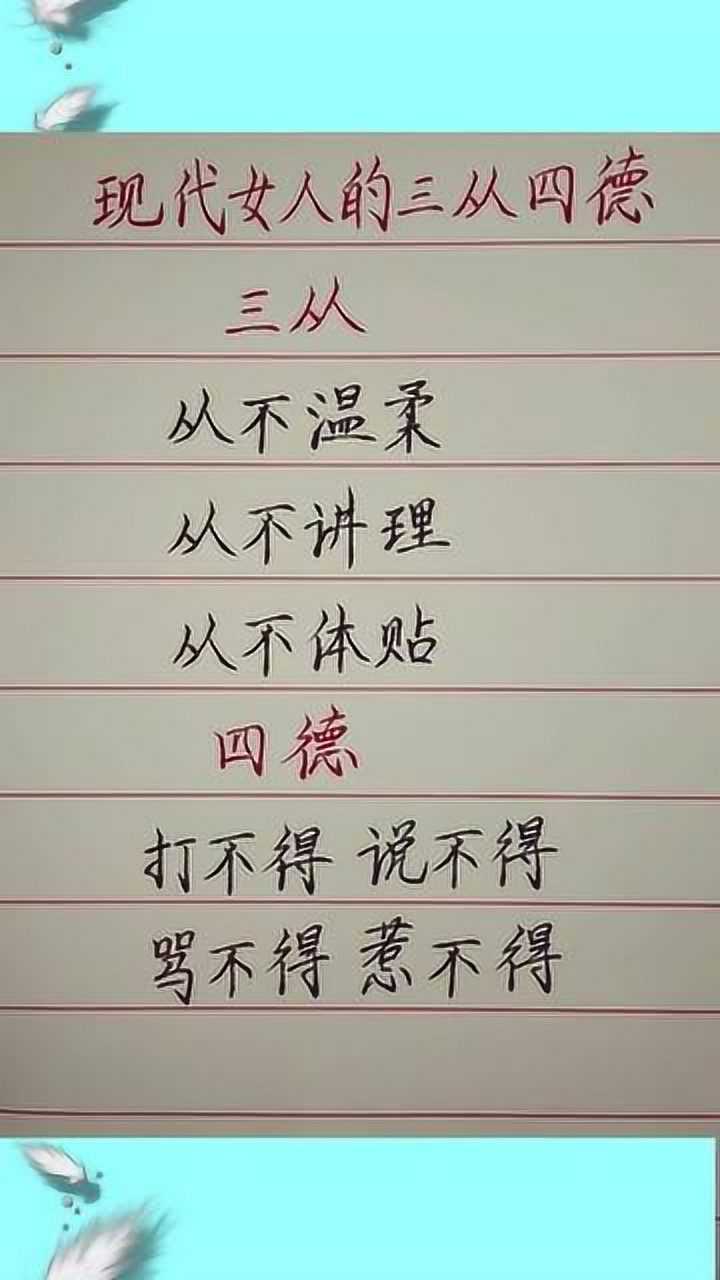 现代女人的三从四德
三从
从不温柔
从不讲理
从不体贴
四德
打不得 说不得
骂不得 惹不得